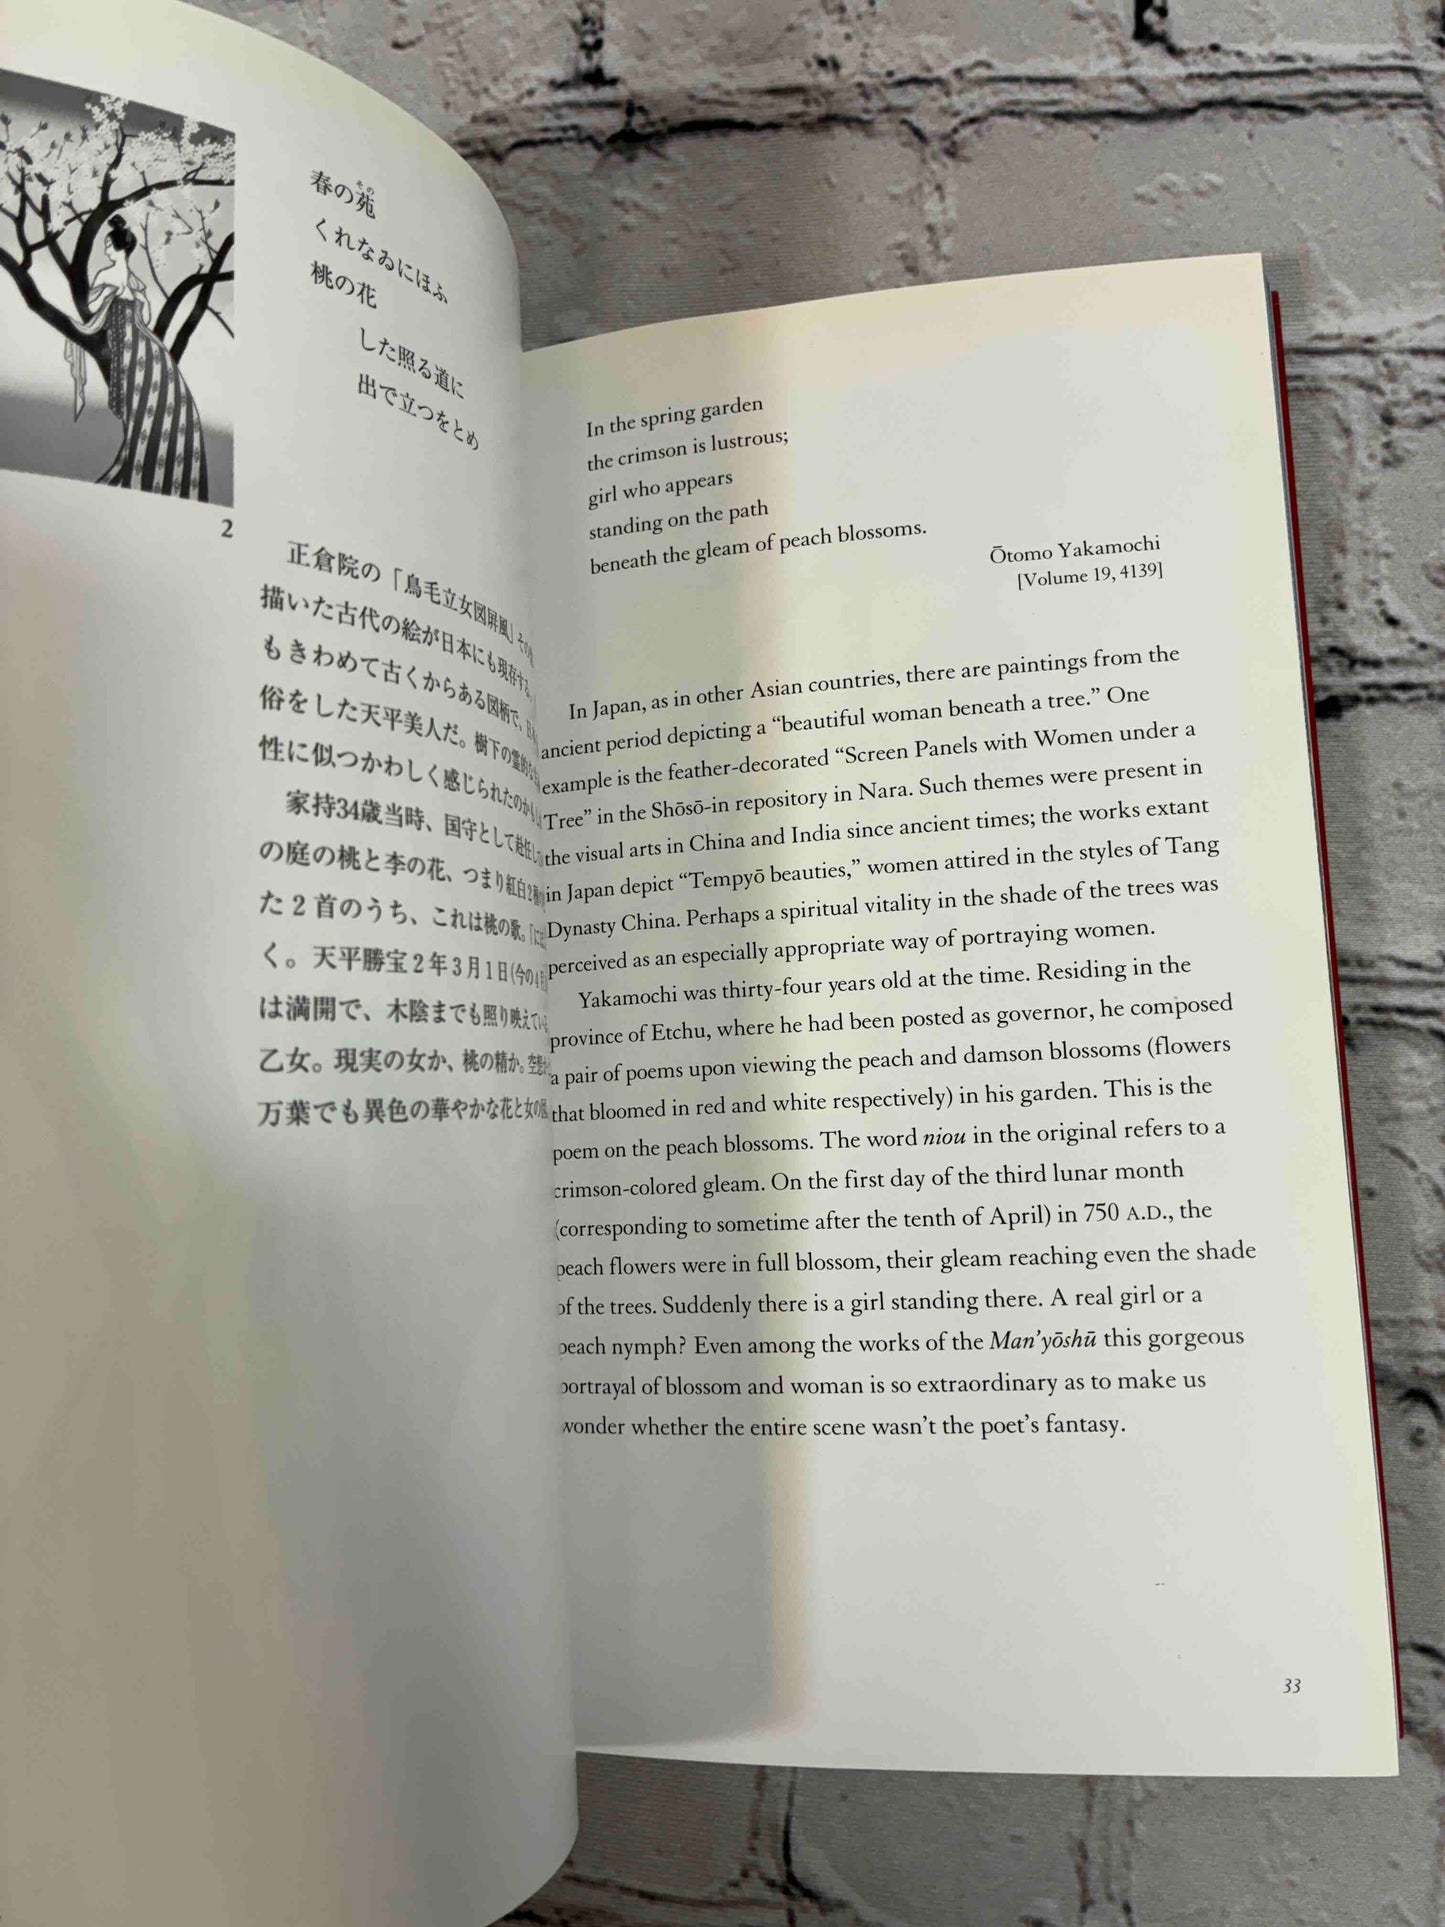 春の苑
その
くれなゐにほふ
桃の花
した照る道に
出で立つをとめ
2
正倉院の「鳥毛立女図屏風」その他
描いた古代の絵が日本にも現存する。
もきわめて古くからある図柄で、
俗をした天平美人だ。樹下の霊的な
性に似つかわしく感じられたのかも
家持34歳当時、国守として赴任して
の庭の桃と李の花、つまり紅白2種
た2首のうち、これは桃の歌。「にほ
く。天平勝宝2年3月1日(今の4月
は満開で、木陰までも照り映えている
乙女。現実の女か、桃の精か。空想か
万葉でも異色の華やかな花と女の図
In the spring garden
the crimson is lustrous;
girl who appears
standing on the path
beneath the gleam of peach blossoms.
Ōtomo Yakamochi
[Volume 19, 4139]
In Japan, as in other Asian countries, there are paintings from the
ancient period depicting a “beautiful woman beneath a tree.” One
example is the feather-decorated “Screen Panels with Women under a
Tree” in the Shōsō-in repository in Nara. Such themes were present in
the visual arts in China and India since ancient times; the works extant
in Japan depict “Tempyō beauties,” women attired in the styles of Tang
Dynasty China. Perhaps a spiritual vitality in the shade of the trees was
perceived as an especially appropriate way of portraying women.
Yakamochi was thirty-four years old at the time. Residing in the
province of Etchu, where he had been posted as governor, he composed
a pair of poems upon viewing the peach and damson blossoms (flowers
that bloomed in red and white respectively) in his garden. This is the
poem on the peach blossoms. The word niou in the original refers to a
crimson-colored gleam. On the first day of the third lunar month
(corresponding to sometime after the tenth of April) in 750 A.D., the
peach flowers were in full blossom, their gleam reaching even the shade
of the trees. Suddenly there is a girl standing there. A real girl or a
peach nymph? Even among the works of the Man’yōshū this gorgeous
portrayal of blossom and woman is so extraordinary as to make us
wonder whether the entire scene wasn’t the poet’s fantasy.
33